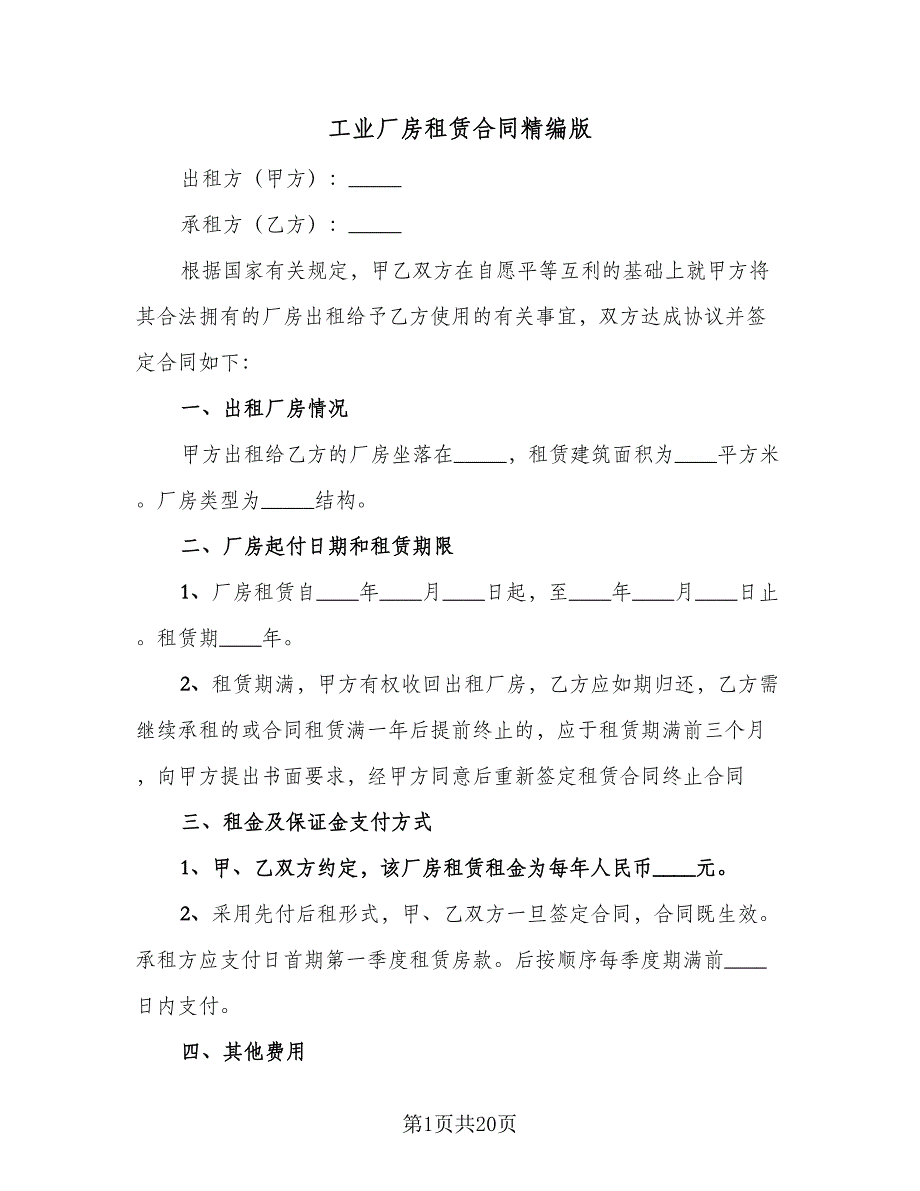 工业厂房租赁合同精编版
出租方（甲方）：_____
承租方（乙方）：_____
根据国家有关规定，甲乙双方在自愿平等互利的基础上就甲方将
其合法拥有的厂房出租给予乙方使用的有关事宜，双方达成协议并签
定合同如下：
一、出租厂房情况
甲方出租给乙方的厂房坐落在_____，租赁建筑面积为____平方米
。厂房类型为_____结构。
二、厂房起付日期和租赁期限
1、厂房租赁自____年____月____日起，至____年____月____日止
。租赁期____年。
2、租赁期满，甲方有权收回出租厂房，乙方应如期归还，乙方需
继续承租的或合同租赁满一年后提前终止的，应于租赁期满前三个月
，向甲方提出书面要求，经甲方同意后重新签定租赁合同终止合同
三、租金及保证金支付方式
1、甲、乙双方约定，该厂房租赁租金为每年人民币____元。
2、采用先付后租形式，甲、乙双方一旦签定合同，合同既生效。
承租方应支付日首期第一季度租赁房款。后按顺序每季度期满前____
日内支付。
四、其他费用
第1页共20页